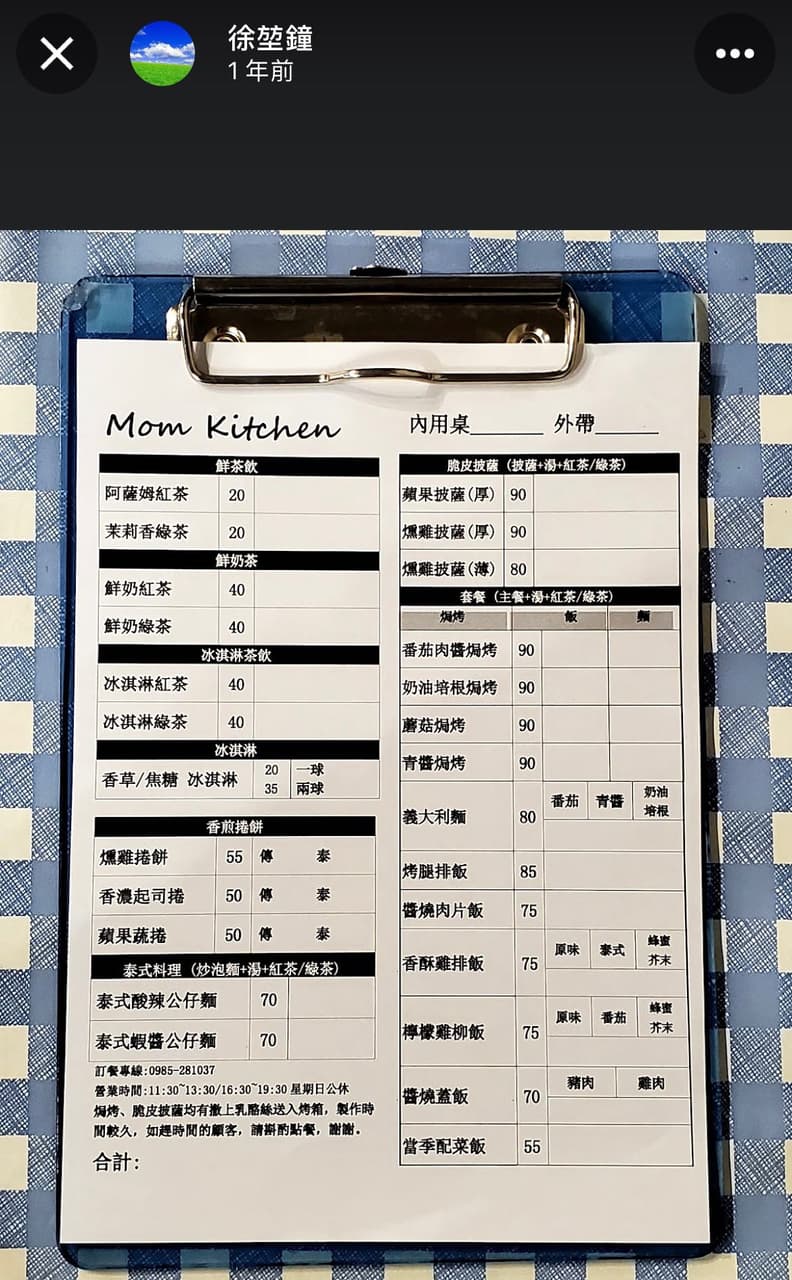 徐堃鐘
1 年前
Mom Kitchen
內用桌______ 外帶______
鮮茶飲
阿薩姆紅茶 20
茉莉香綠茶 20
鮮奶茶
鮮奶紅茶 40
鮮奶綠茶 40
冰淇淋茶飲
冰淇淋紅茶 40
冰淇淋綠茶 40
冰淇淋
香草/焦糖 冰淇淋 20 一球
35 兩球
香煎捲餅
燻雞捲餅 55 傳 泰
香濃起司捲 50 傳 泰
蘋果蔬捲 50 傳 泰
泰式料理（炒泡麵+湯+紅茶/綠茶）
泰式酸辣公仔麵 70
泰式蝦醬公仔麵 70
訂餐專線:0985-281037
營業時間:11:30~13:30/16:30~19:30 星期日公休
焗烤、脆皮披薩均有撒上乳酪絲送入烤箱，製作時
間較久，如趕時間的顧客，請斟酌點餐，謝謝.
合計:
脆皮披薩（披薩+湯+紅茶/綠茶）
蘋果披薩(厚) 90
燻雞披薩(厚) 90
燻雞披薩(薄) 80
套餐（主餐+湯+紅茶/綠茶）
焗烤 飯 麵
番茄肉醬焗烤 90
奶油培根焗烤 90
蘑菇焗烤 90
青醬焗烤 90
義大利麵 80 番茄 青醬 奶油培根
烤腿排飯 85
醬燒肉片飯 75
香酥雞排飯 75 原味 泰式 蜂蜜芥末
檸檬雞柳飯 75 原味 番茄 蜂蜜芥末
醬燒蓋飯 70 豬肉 雞肉
當季配菜飯 55